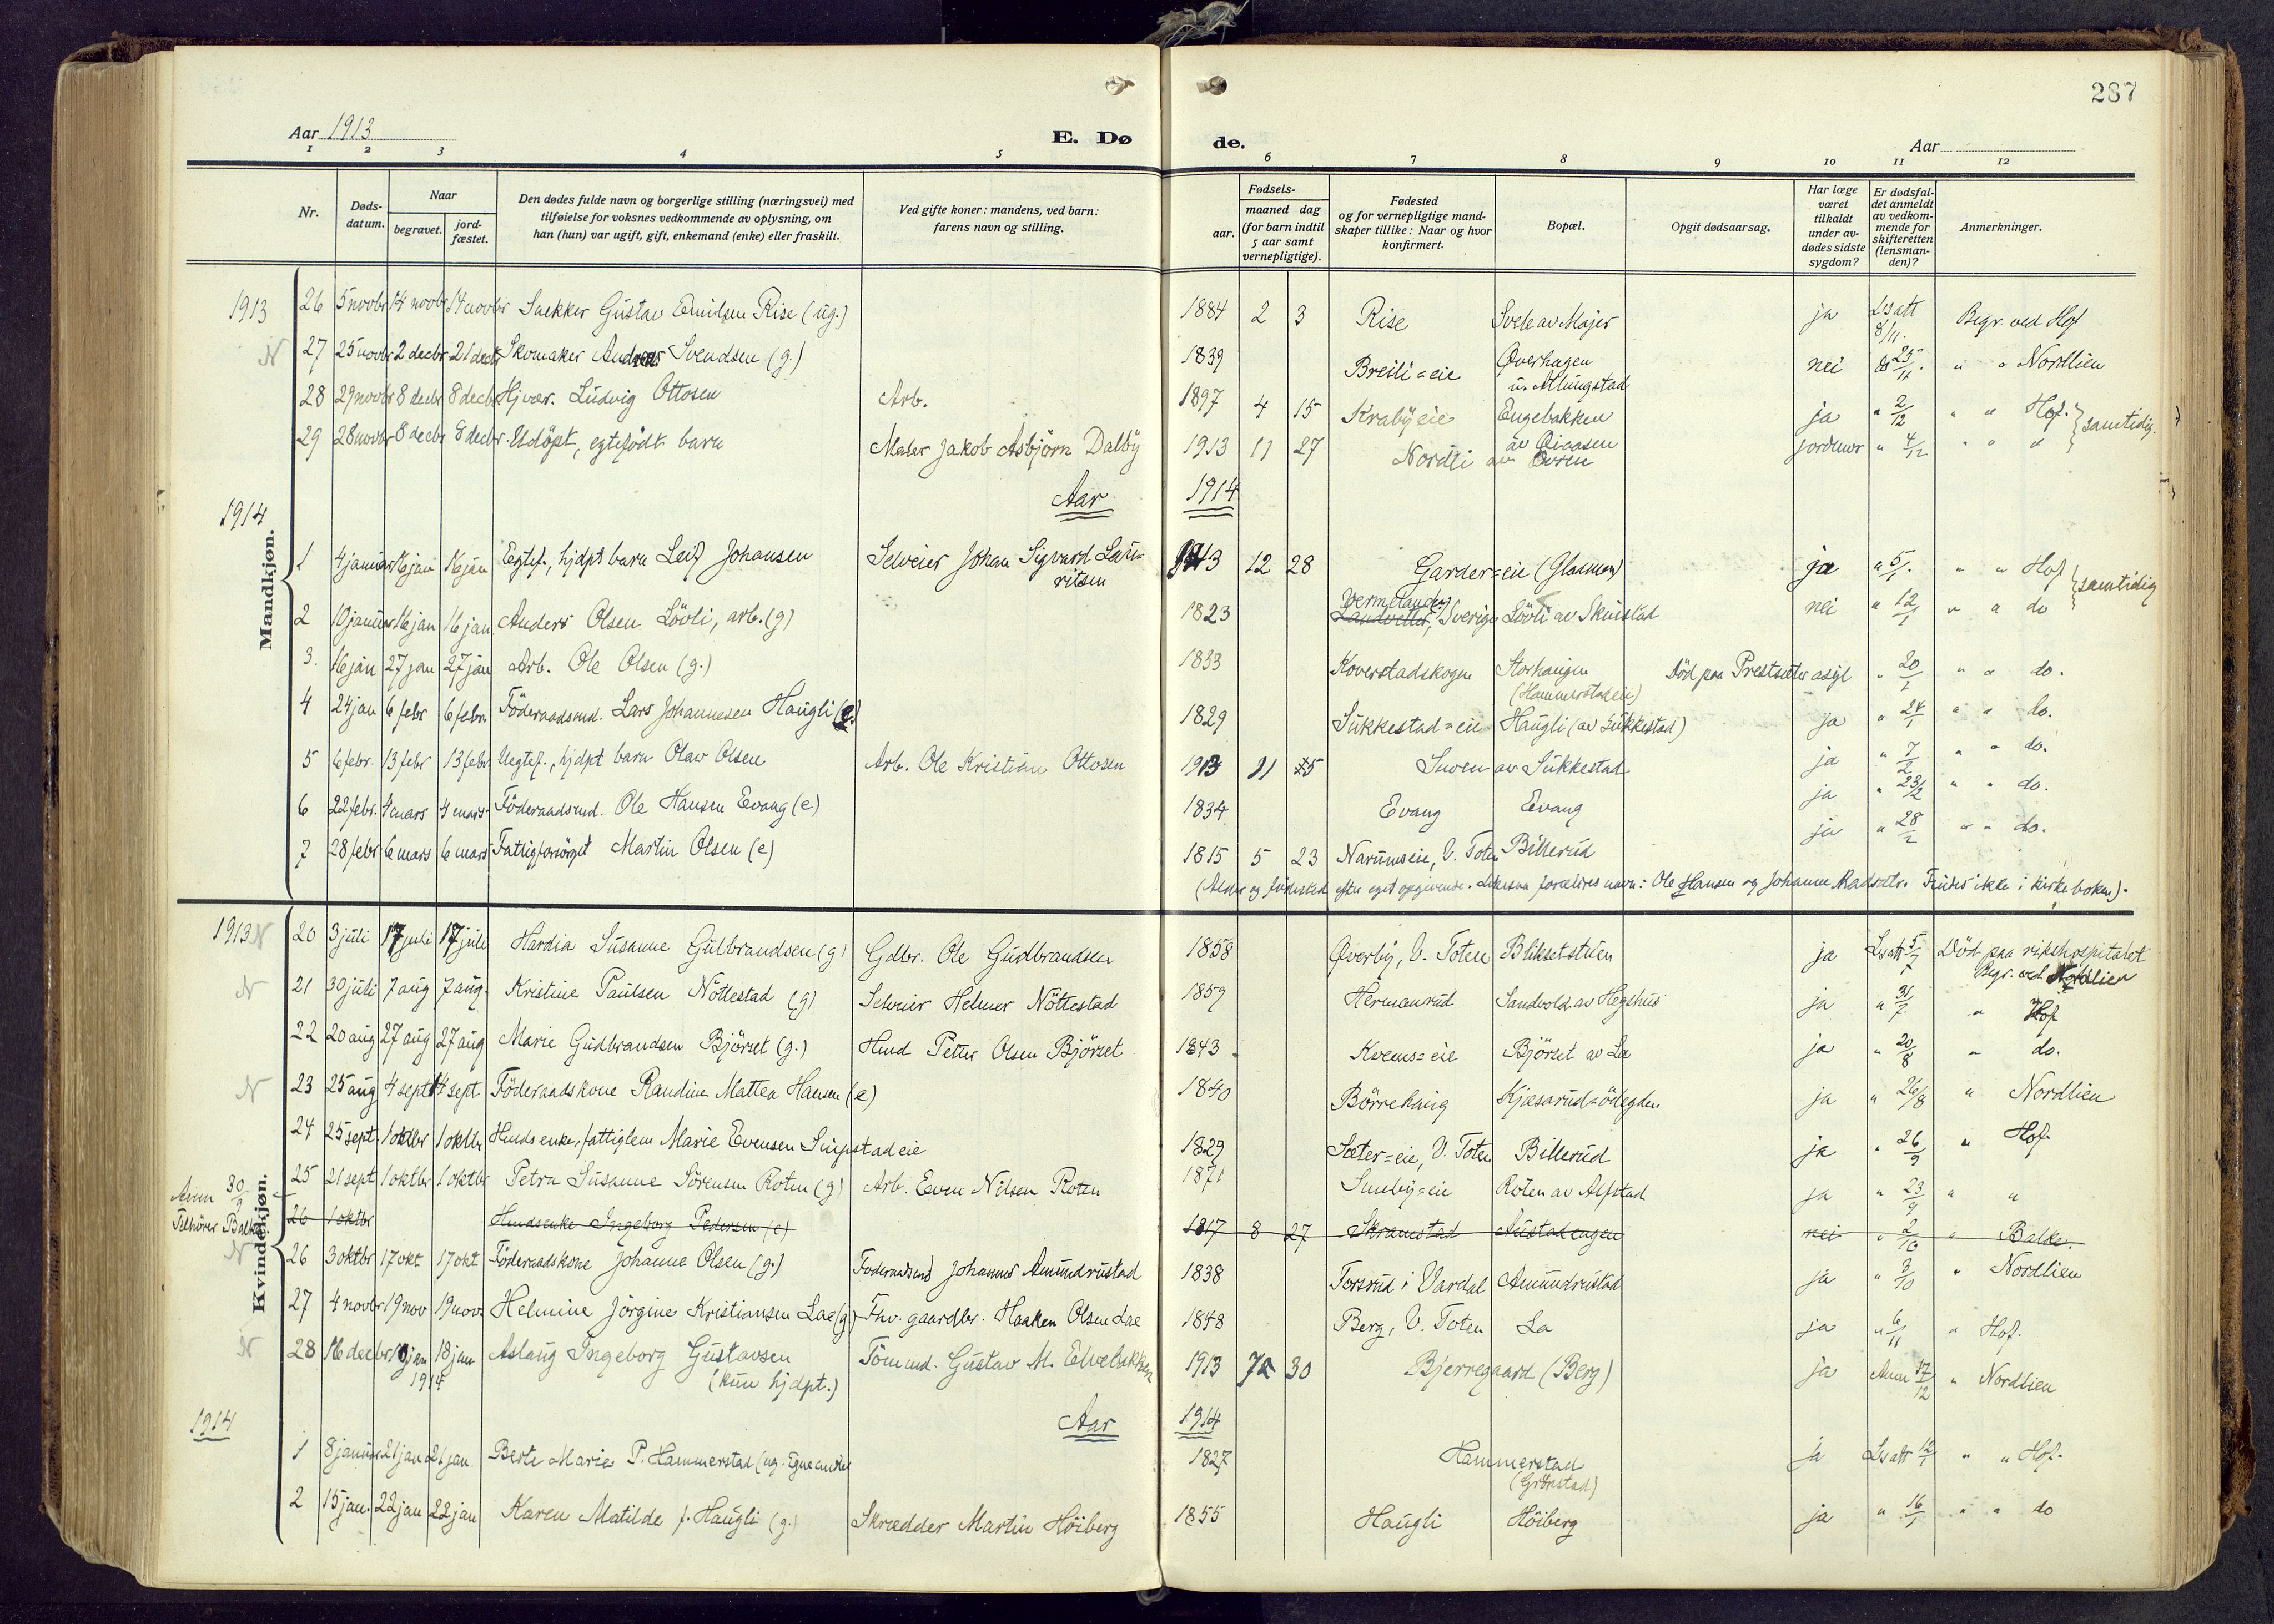 287
Aar 1913 E. Dø de. Aar
1 2 3 4 5 6 7 8 9 10 11 12
Nr. Døds-datum. Naar begravet. jord-fæstet. Den dødes fulde navn og borgerlige stilling (næringsvei) med tilføielse for voksnes vedkommende av oplysning, om han (hun) var ugift, gift, enkemand (enke) eller fraskilt. Ved gifte koner: mandens, ved barn: farens navn og stilling. Fødsels- aar. maaned dag (for barn indtil 5 aar samt vernepligtige). Fødested og for vernepligtige mandskaper tillike: Naar og hvor konfirmert. Bopæl. Opgit dødsaarsag. Har læge været tilkaldt under avdødes sidste sygdom? Er dødsfaldet anmeldt av vedkommende for skifteretten (lensmanden)? Anmerkninger.
Mandkjøn.
1913 26 5 novbr 14 novbr 14 novbr Snekker Gustav Emilsen Rise (ug.) 1884 2 3 Rise Svele av Majer ja Lsatt 8/11. Begr. ved Hof
N 27 25 novbr 2 decbr 21 decbr Skomaker Andreas Svendsen (g.) 1839 Breili=eie Øverhagen u. Alungstad nei " 25/11. " " Nordlien
28 29 novbr 8 decbr 8 decbr Hjvær. Ludvig Ottosen Arb. 1897 4 15 Kraby eie Engebakken ja " 2/12 " " Hof. } samtidig.
29 28 novbr 8 decbr 8 decbr. Udöpt, egtefödt barn Maler Jakob Asbjörn Dalby 1913 11 27 Nordli av Evren jordmor " 4/12 " " "
Aar 1914
1914 1 4 januar 16 jan 16 jan Egtef., hjdpt barn Leif Johansen Selveier Johan Sigvard Lauritsen 1913 12 28 Garder=eie (Glasmen) ja " 5/1. " " Hof } samtidig
2 10 januar 16 jan 16 jan Anders Olsen Lövli, arb. (g) 1823 Vermeland, Sverige Lövli av Skuistad nei " 12/1 " " do
3. 16 jan 27 jan 27 jan Arb. Ole Olsen (g.) 1833 Koverstadskogen Storhaugen (Hammerstadeie) Död paa Prestsæter asyl " 20/1 " " do.
4 24 jan 6 febr 6 febr. Föderaadsmd. Lars Johannesen Haugli (e.) 1829 Sukkestad=eie Haugli (av Sukkestad) ja " 24/1 " " do.
5 6 febr. 13 febr 13 febr Uegtef., hjdpt barn Olav Olsen Arb. Ole Kristian Ottosen 1913 11 25 Suven av Sukkestad ja " 7/2 " " do.
6 22 febr. 4 mars 4 mars Föderaadsmd. Ole Hansen Evang (e) 1834 Evang Evang ja " 23/2 " " do.
7 28 febr 6 mars 6 mars Fattigforsörget Martin Olsen (e) 1815 5 23 Narumseie, V. Toten Billerud ja " 28/2 " " do.
(Alder og födested efter eget opgivende. Likesaa forældres navn: Ole Hansen og Johanne Madsdtr. Findes ikke i kirkeboken).
Kvindekjøn.
1913 N 20 3 juli 17 juli 17 juli Hardia Susanne Gulbrandsen (g) Gdbr. Ole Gudbrandsen 1858 Øverby, V. Toten Bliksetstuen ja Lsatt 5/7 Död paa rikshospitalet Begr. ved Nordlien
N 21 30 juli 7 aug 7 aug. Kristine Paulsen Nöttestad (g) Selveier Helmer Nöttestad 1859 Hermanrud Sandvold av Hegshus ja " 31/7 " Hof
22 20 aug 27 aug 27 aug Marie Gudbrandsen Björset (g.) Hmd Petter Olsen Björset 1843 Kvems=eie Björset av Lee ja " 20/8 " do.
N 23 25 aug 4 sept 4 sept Föderaadskone Randine Mattea Hansen (e) 1840 Börrehaug Kjæsarud=ödegden ja " 26/8 " Nordlien
24 25 sept. 1 oktbr 1 oktbr Hmdsenke, fattiglem Marie Evensen Suystad eie 1829 Sæter=eie, V. Toten Billerud ja " 26/9 " Hof.
25 21 sept 1 oktbr 1 oktbr Petra Susanne Sörensen Roten (g) Arb. Even Nilsen Roten 1871 Smeby=eie Roten av Alfstad ja " 23/9 " "
Anm 30/9 Tilhörer Balke 26 1 oktbr Hmdsenke Ingeborg Pedersen (e) 1817 8 27 Skramstad Austadengen nei " 2/10 " Balke.
N 26 3 oktbr 17 okt 17 okt Föderaadskone Johanne Olsen (g.) Föderaadsmd Johannes Amundrustad 1838 Forsrud i Vardal Amundrustad ja " 3/10 " Nordlien
27 4 novbr 19 nov 19 nov. Helmine Jörgine Kristiansen Lae (g) Fhv. gaardbr. Haaken Olsen Lae 1848 Berg, V. Toten La ja " 6/11 " Hof.
N 28 16 decbr 10 jan 1914 18 jan Aslaug Ingeborg Gustavsen (kun hjdpt.) Tömmd. Gustav M. Elvebakken 1913 72 30 Bjerregaard (Berg) ja Anm 17/12 " Nordlien
Aar 1914
1914 1 8 januar 21 jan 21 jan Berte Marie P. Hammerstad (ug. Egne midler 1827 Hammerstad (Grönstad) ja Lsatt 12/1 " " Hof.
2 15 jan. 22 jan 22 jan Karen Matilde f. Haugli (g.) Skrædder Martin Höiberg 1855 Haugli Höiberg ja " 16/1 " " do